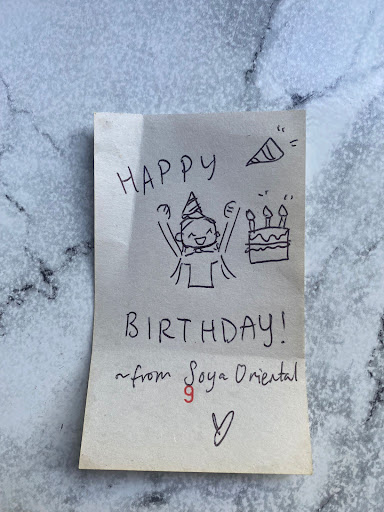 HAPPY
BIRTHDAY!
~from Soya Oriental
9